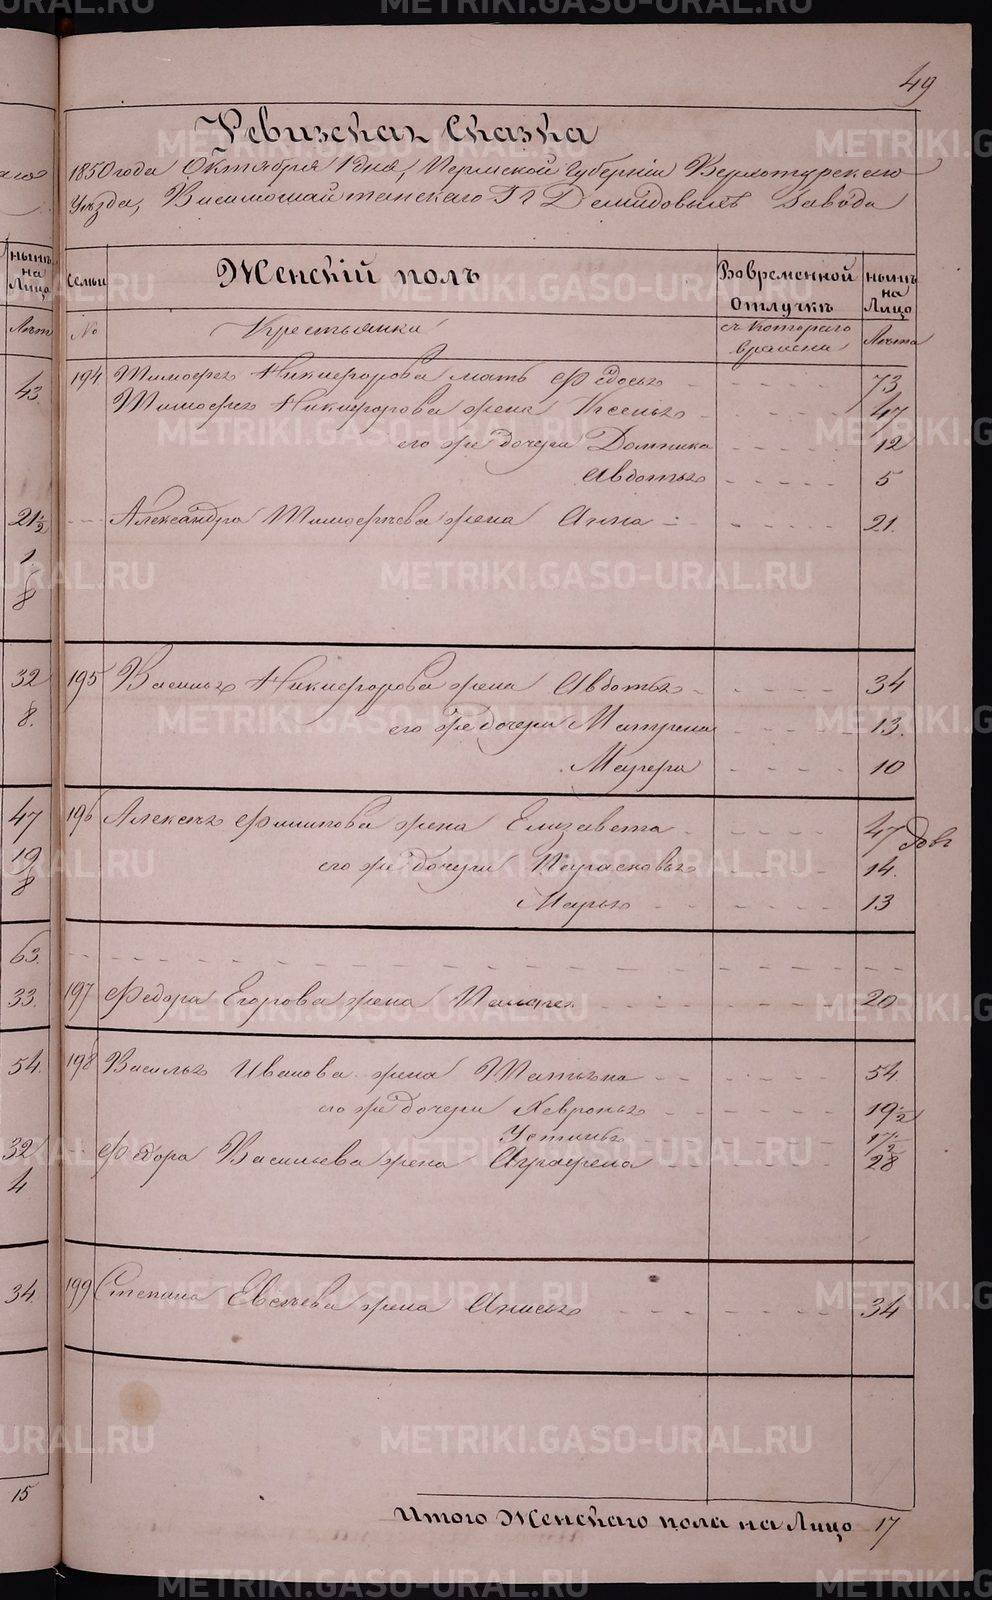 49
Ревизская Сказка
1850 года Октября 1 дня, Пермской Губерніи Верхотурскаго
Уѣзда, Висимошайтанскаго Гг Демидовыхъ Завода
нынѣ на Лицо
Лѣта
Семьи
Женскій полъ
Во временной отлучкѣ
нынѣ на Лицо
№
Крестьянки
съ котораго времени
Лѣта
43
194 Тимофея Никифорова мать Федосья 73
Тимофея Никифорова жена Ксенья 47
его же дочери Домника 12
Авдотья 5
21½
Александра Тимофѣева жена Анна 21.
1
8
32
195 Василья Никифорова жена Авдотья 34
8.
его же дочери Матрена 13.
Марфа 10
47
196 Алексѣя Филипова жена Елизавета 47
19
его же дочери Парасковья 14.
8
Марья 13
63.
33.
197 Федора Егорова жена 20
54.
198 Василья Иванова жена Татьяна 54
его же дочери Хевронья 19½
Устинья 17½
32
Федора Васильева жена Аграфена 28
4
34.
199 Степана Евсѣева жена Анисья 34
15
Итого Женскаго пола на Лицо 17
METRIKI.GASO-URAL.RU